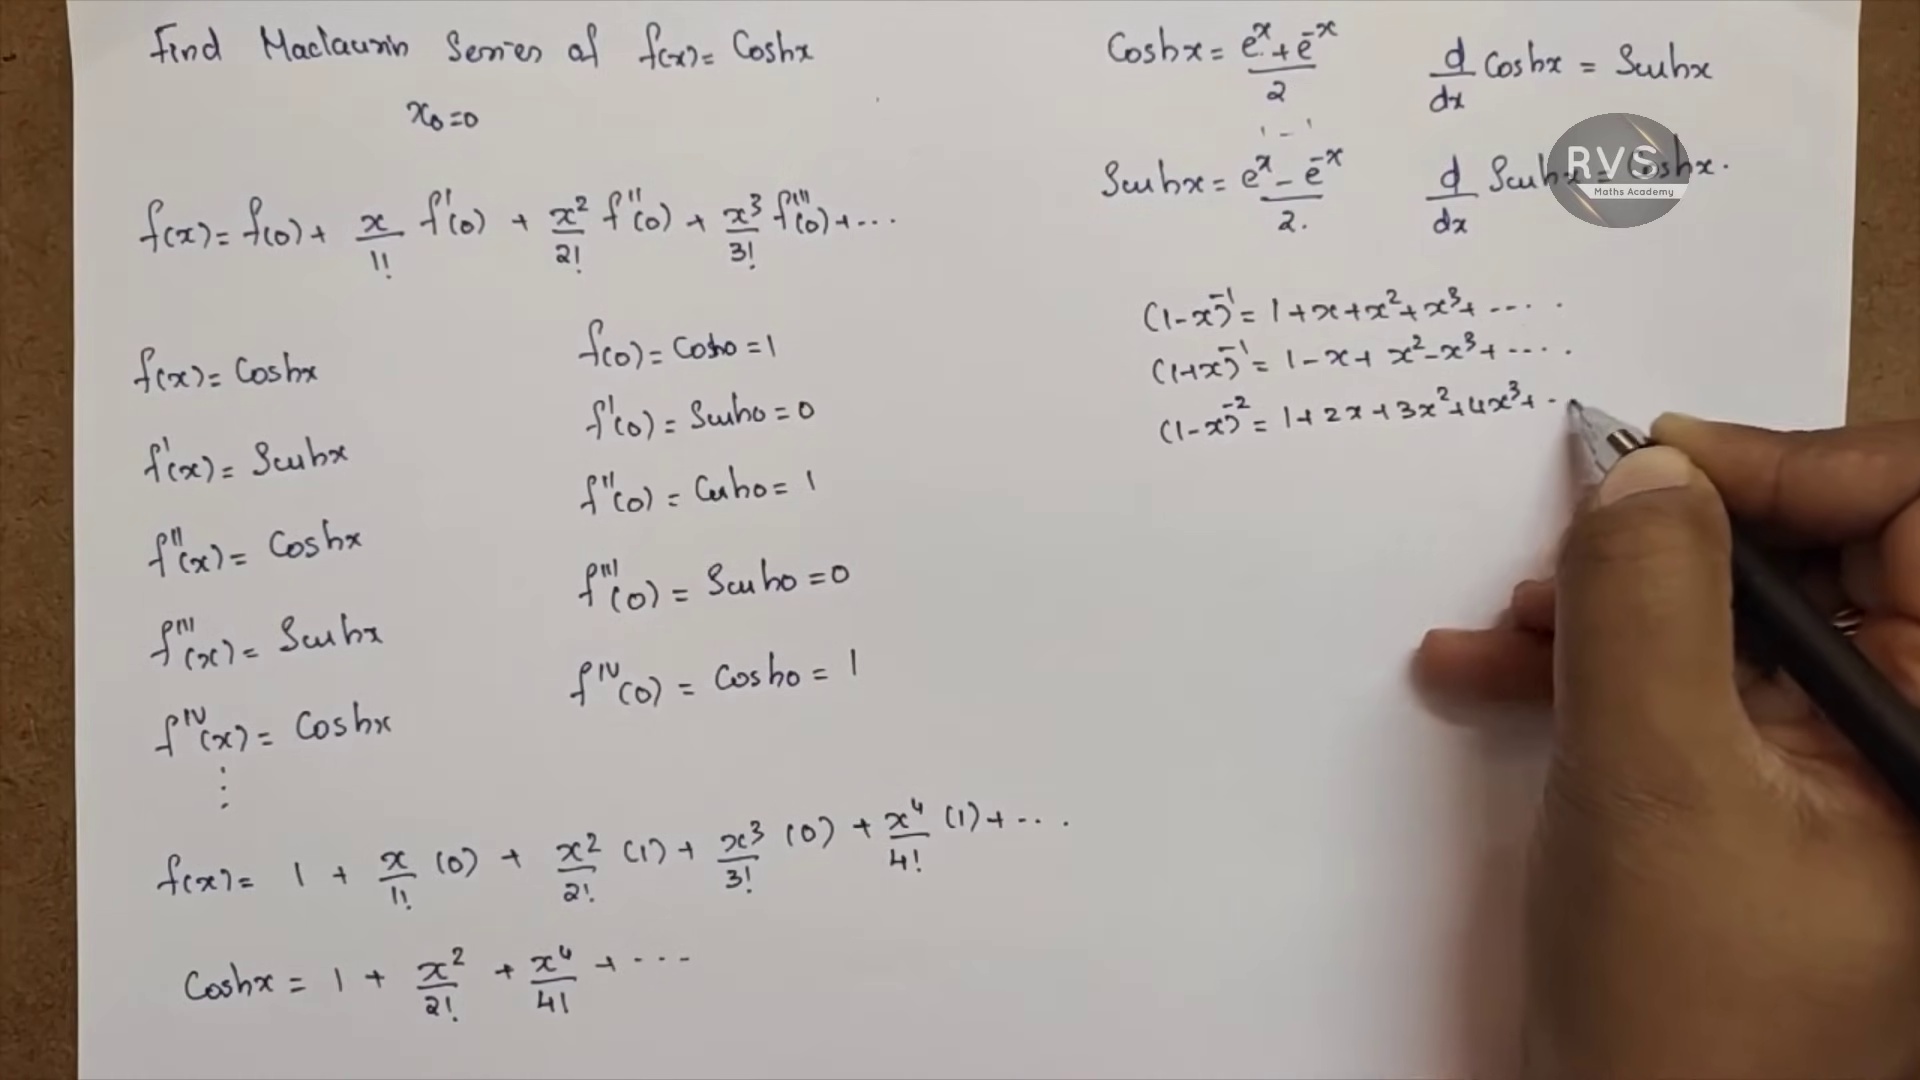 Find Maclaurin Series of f(x) = Coshx
x₀ = 0
f(x) = f(0) + x/1! f'(0) + x²/2! f''(0) + x³/3! f'''(0) + ...
f(x) = Coshx
f'(x) = Sinhx
f''(x) = Coshx
f'''(x) = Sinhx
f^IV(x) = Coshx
⋮
f(0) = Cosh0 = 1
f'(0) = Sinh0 = 0
f''(0) = Cosh0 = 1
f'''(0) = Sinh0 = 0
f^IV(0) = Cosh0 = 1
f(x) = 1 + x/1! (0) + x²/2! (1) + x³/3! (0) + x⁴/4! (1) + ...
Coshx = 1 + x²/2! + x⁴/4! + ...
Coshx = (e^x + e^-x)/2
d/dx Coshx = Sinhx
1 - 1
Sinhx = (e^x - e^-x)/2.
d/dx Sinhx = Coshx.
RVS
Maths Academy
(1-x)^-1 = 1 + x + x² + x³ + ....
(1+x)^-1 = 1 - x + x² - x³ + ....
(1-x)^-2 = 1 + 2x + 3x² + 4x³ + ..